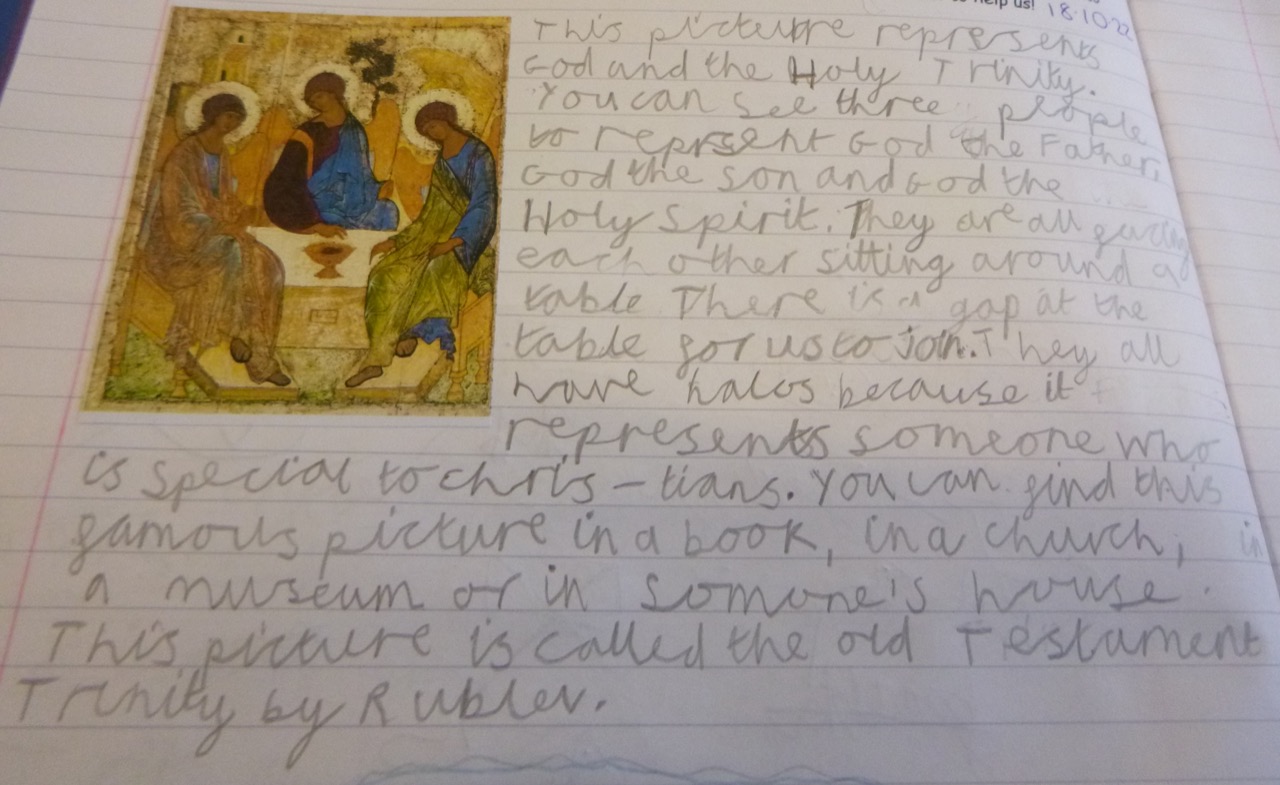 to help us!
18.10.22
This picture represents
God and the Holy Trinity.
You can see three people
to reprsent God the Father,
God the son and God the
Holy Spirit. They are all facing
each other sitting around a
table There is a gap at the
table for us to join. They all
have halos because it
represents someone who
is special to chris-tians. You can find this
famous picture in a book, in a church, in
a museum or in somone's house.
This picture is called the old Testament
Trinity by Rublev.